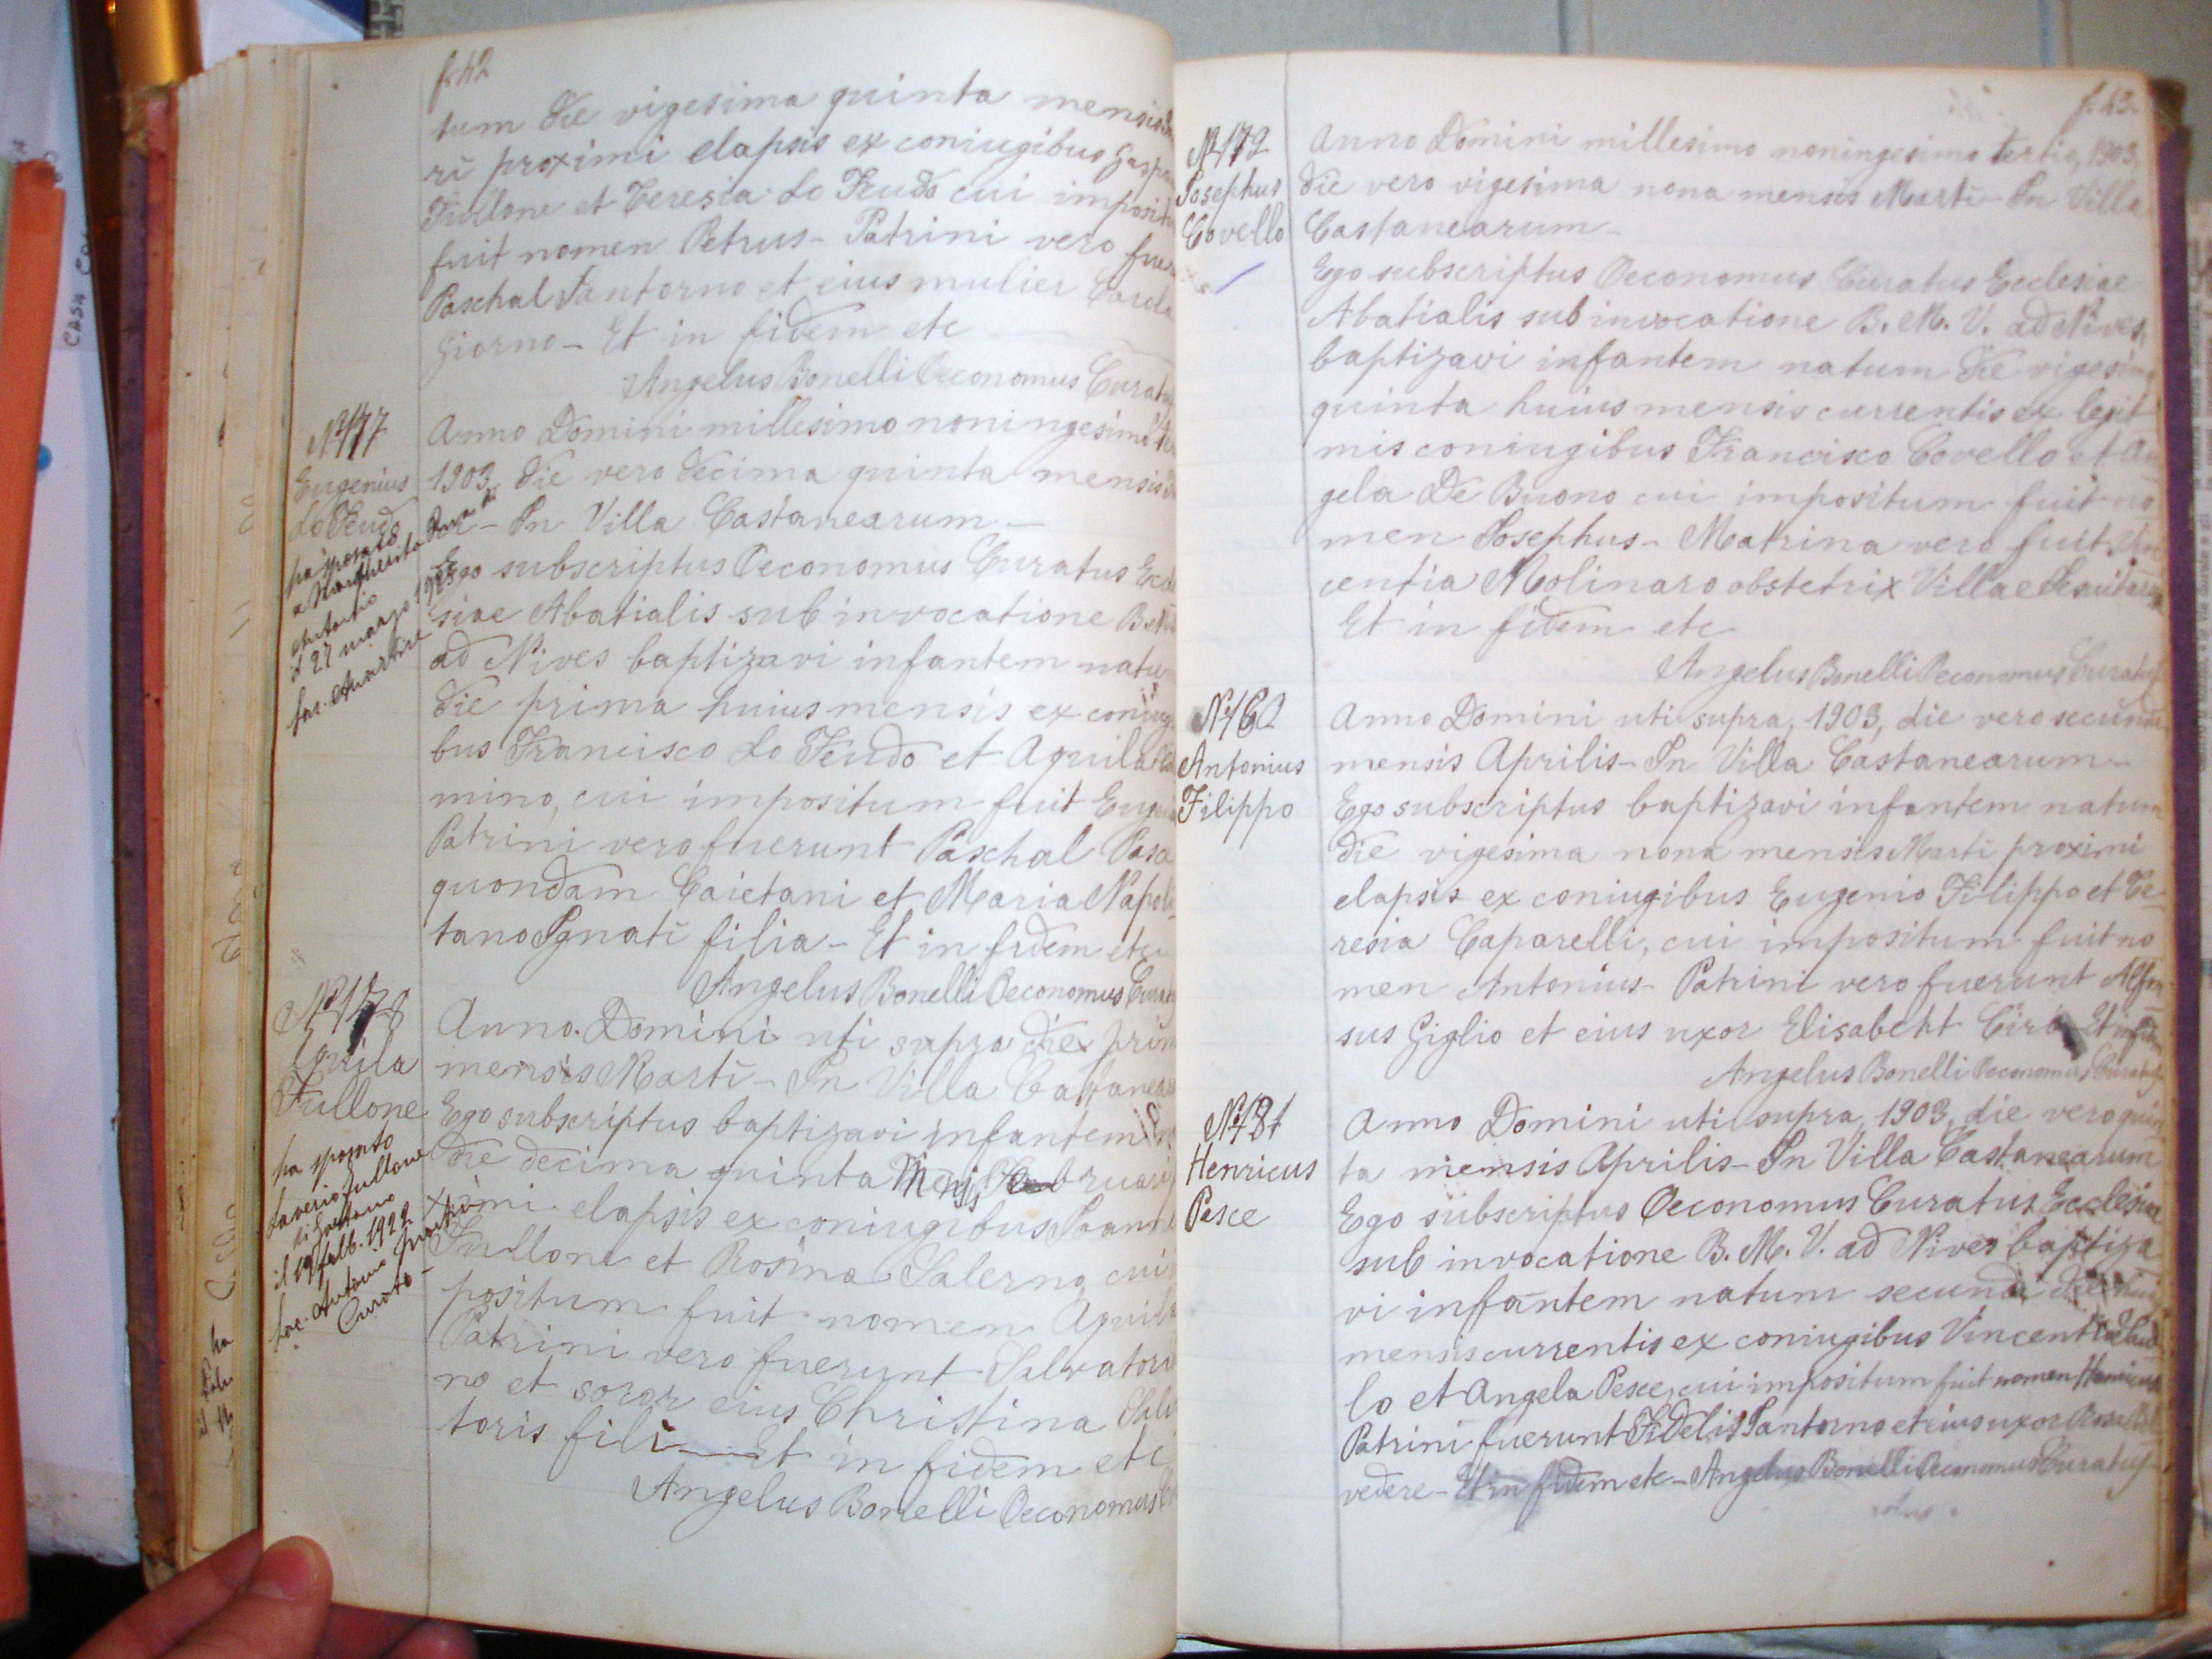 f. 42
tum die vigesima quinta mensis
ri proximi elapsis ex coniugibus
Fullone et Teresia Lo Feudo cui imposit
fuit nomen Petrus - Patrini vero fue
Paschal Santorno et eius mulier Carola
Giorno - Et in fidem etc
Angelus Bonelli Oeconomus Curatus
N° 177
Eugenius
Lo Feudo
ha sposato
a Margherita
Antonio
il 27 marzo 1923
Sac. Martire
Anno Domini millesimo noningesimo
1903, die vero decima quinta mensis
In Villa Castanearum -
Ego subscriptus Oeconomus Curatus Eccle
siae Abatialis sub invocatione B. M.
ad Nives baptizavi infantem natum
die prima huius mensis ex coniugi
bus Francisco Lo Feudo et Aquila
mino, cui impositum fuit
Patrini vero fuerunt Paschal Pasa
quondam Caietani et Maria Napoli
tano Ignatī filia - Et in fidem etc
Angelus Bonelli Oeconomus Curat
N° 178
Aquila
Fullone
ha sposato
Saverio Fullone
di Gaetano
il 19 febb. 1922
Sac. Antonio Martire
Curato -
Anno Domini uti supra die prim
mensis Martī - In Villa Castanear
Ego subscriptus baptizavi infantem
die decima quinta Mensis Februari
ximi elapsis ex coniugibus Ioanne
Fullone et Rosina Salerno, cui
positum fuit nomen Aquila
Patrini vero fuerunt Salvatore
no et soror eius Christina Salva
toris fili Et in fidem etc
Angelus Bonelli Oeconomus
f. 43.
N° 179
Iosephus
Covello
Anno Domini millesimo noningesimo tertio, 1903,
die vero vigesima nona mensis Martī - In Villa
Castanearum -
Ego subscriptus Oeconomus Curatus Ecclesiae
Abatialis sub invocatione B. M. V. ad Nives,
baptizavi infantem natum die vigesima
quinta huius mensis currentis ex legit
mis coniugibus Francisco Covello et An
gela De Buono cui impositum fuit no
men Iosephus - Matrina vero fuit
centia Molinaro obstetrix Villae
Et in fidem etc
Angelus Bonelli Oeconomus Curatus
Antonius
Filippo
Anno Domini uti supra, 1903, die vero secunda
mensis Aprilis - In Villa Castanearum -
Ego subscriptus baptizavi infantem natum
die vigesima nona mensis Martī proximi
elapsis ex coniugibus Eugenio Filippo et Te-
resia Caparelli, cui impositum fuit no
men Antonius - Patrini vero fuerunt Alfon
sus Giglio et eius uxor Elisabeht
Angelus Bonelli Oeconomus Curatus
N° 181
Henricus
Pesce
Anno Domini uti supra, 1903, die vero quin
ta mensis Aprilis - In Villa Castanearum
Ego subscriptus Oeconomus Curatus Ecclesiae
sub invocatione B. M. V. ad Nives baptiza
vi infantem natum secunda die huius
mensis currentis ex coniugibus Vincent
lo et Angela Pesce, cui impositum fuit nomen Henricus
Patrini fuerunt Fidelis Santorno et eius uxor
vedere - Et in fidem etc - Angelus Bonelli Oeconomus Curatus